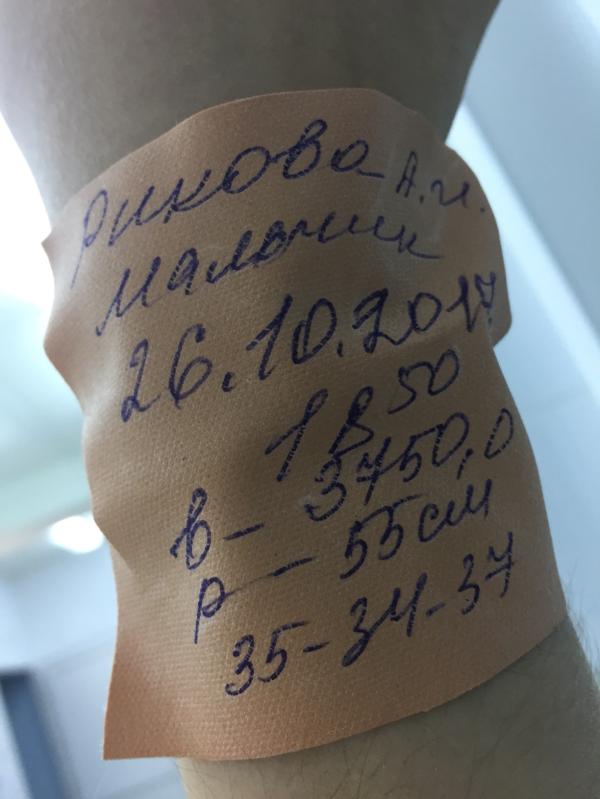 Рикова А.И.
Мальчик
26.10.2017
18 50
в- 3750,0
р - 55см
35-34-37